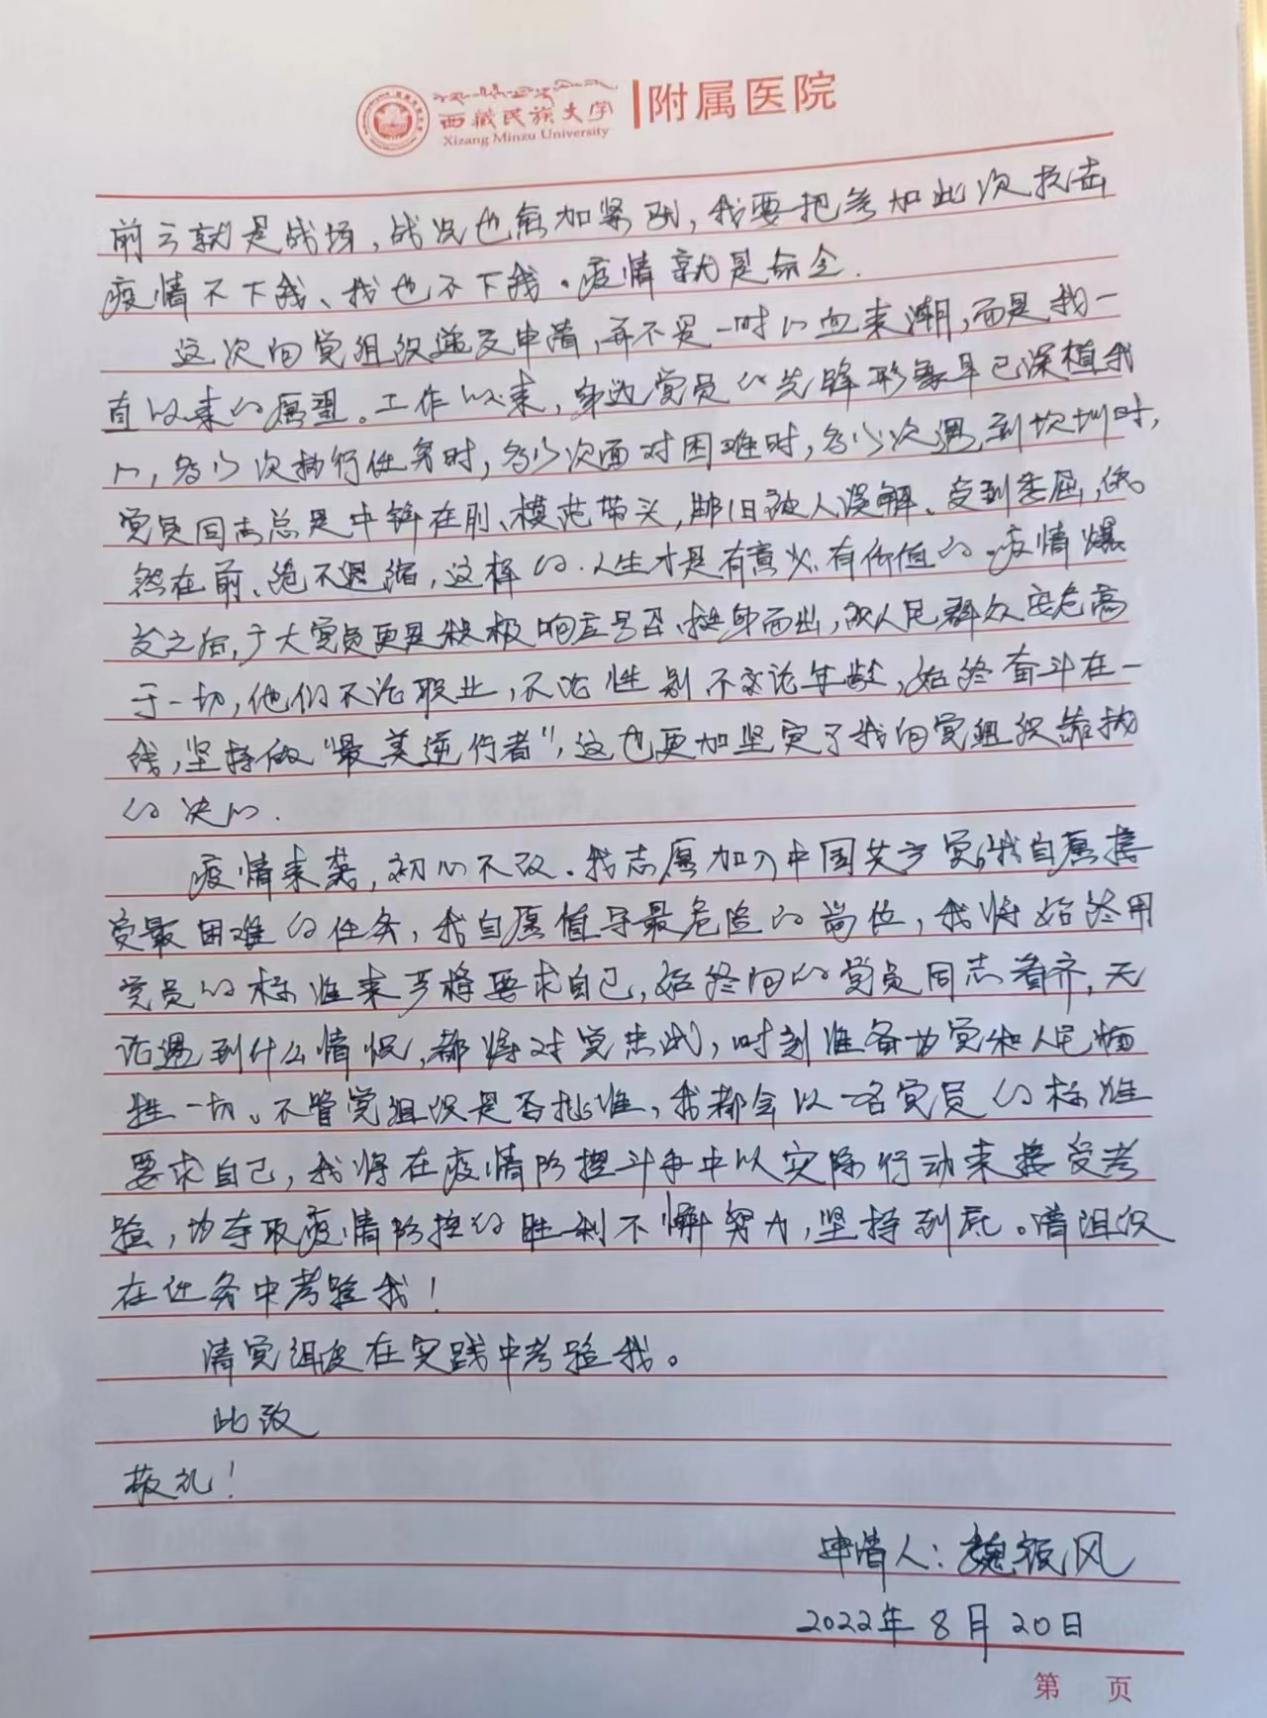 西藏民族大学 附属医院
Xizang Minzu University
前方就是战场，战况也愈加紧张，我要把参加此次抗击
疫情不下我、我也不下我。疫情就是命令.
这次向党组织递交申请，并不是一时心血来潮，而是我一
直以来的愿望。工作以来，身边党员的先锋形象早已深植我
心，多少次执行任务时，多少次面对困难时，多少次遇到坎坷时，
党员同志总是冲锋在前、模范带头，那怕被人误解、受到委屈，依
然在前、绝不退缩，这样的.人生才是有意义.有价值的.疫情爆
发之后，广大党员更是积极响应号召、挺身而出，取人民群众安危高
于一切，他们不论职业，不论性别不论年龄，始终奋斗在一
线，坚持做“最美逆行者”，这也更加坚定了我向党组织靠拢
的决心.
疫情来袭，初心不改.我志愿加入中国共产党，我自愿接
受最困难的任务，我自愿值导最危险的岗位，我将始终用
党员的标准来严格要求自己，始终向的党员同志看齐，无
论遇到什么情况，都将对党忠诚，时刻准备为党和人民牺
牲一切。不管党组织是否批准，我都会以一名党员的标准
要求自己，我将在疫情防控斗争中以实际行动来接受考
验，为夺取疫情防控的胜利不懈努力，坚持到底。请组织
在任务中考验我！
请党组织在实践中考验我。
此致
敬礼！
申请人：魏 风
2022年8月20日
第 页